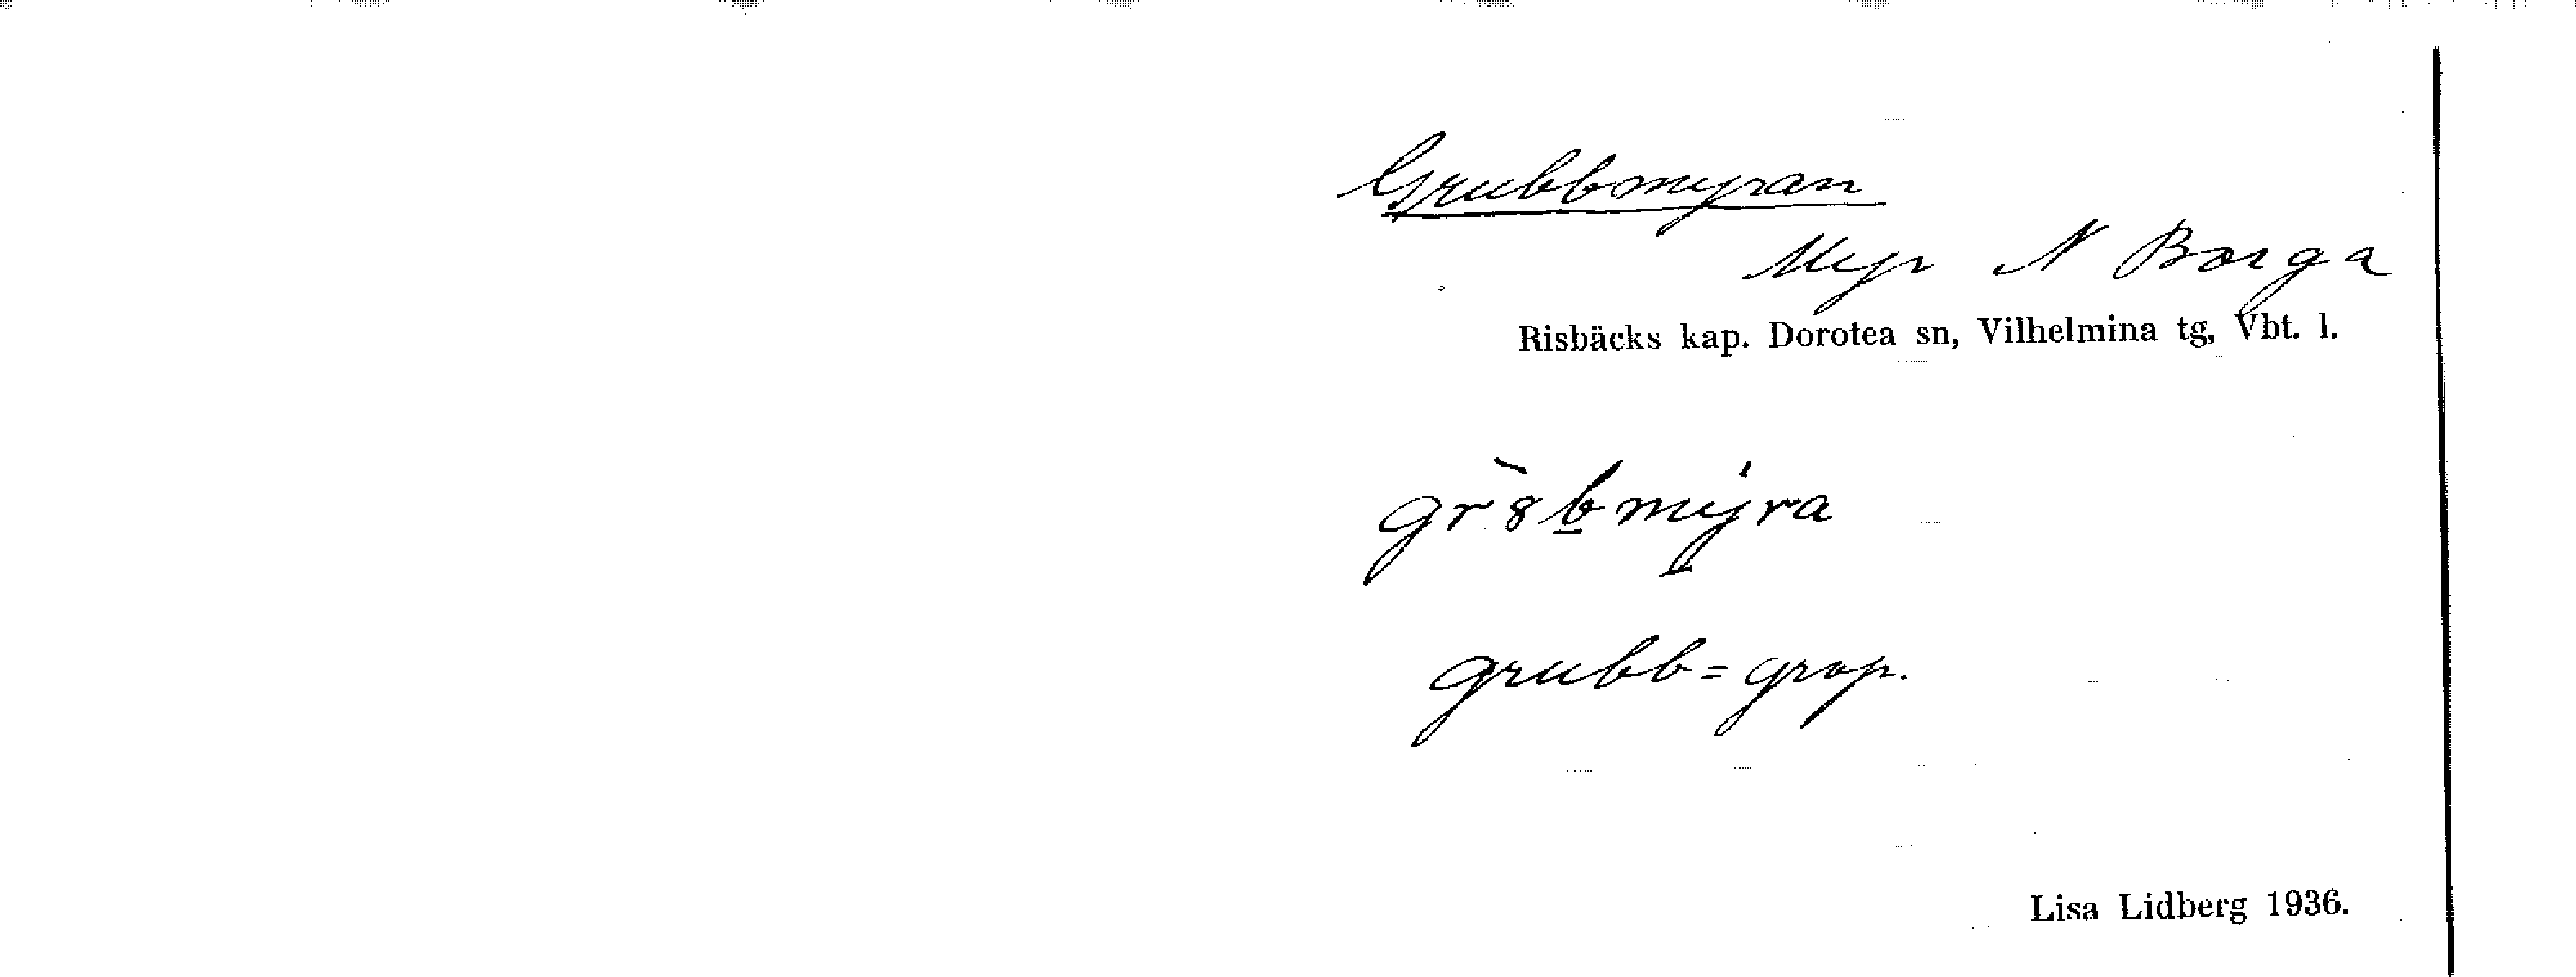 Grubbmyran
Myr N Borga
Risbäcks kap. Dorotea sn, Vilhelmina tg, Vbt. l.
gr8̀b̲mýra
grubb = grop.
Lisa Lidberg 1936.